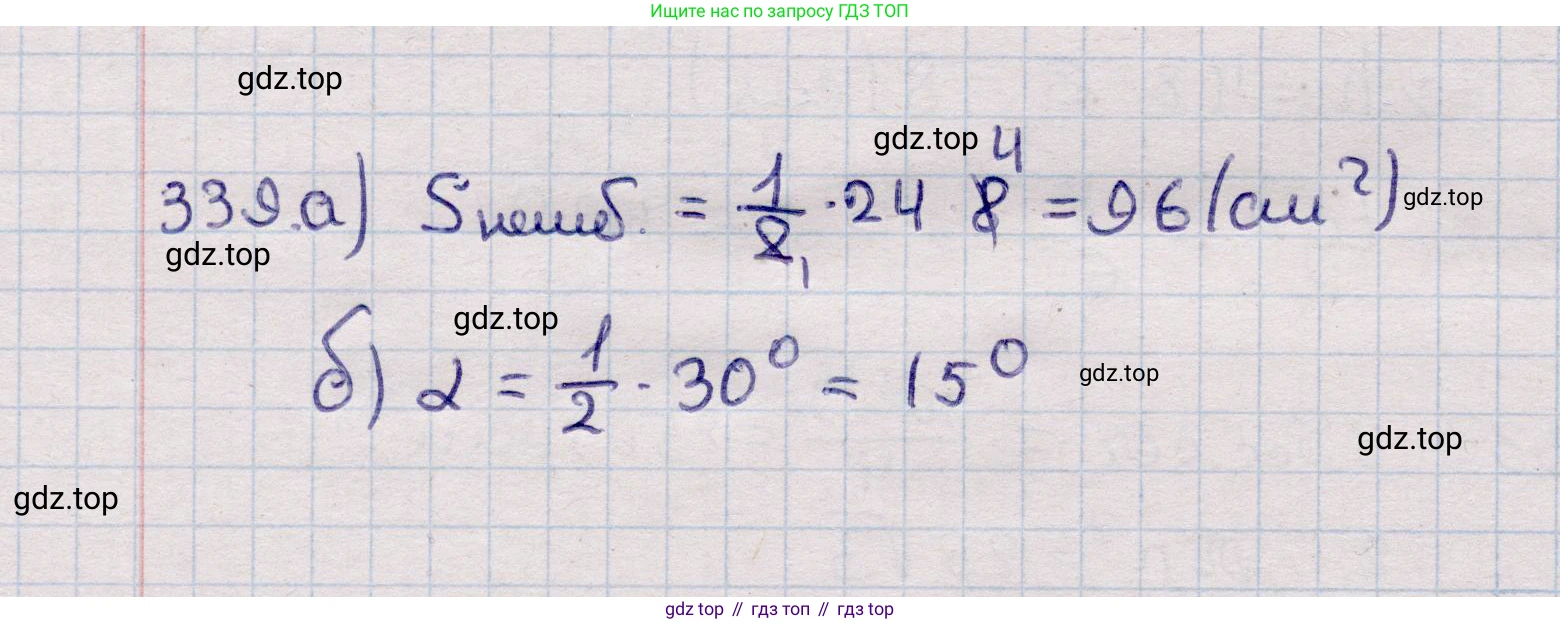 Ищите нас по запросу ГДЗ ТОП
gdz.top
gdz.top
339.а) S = 1/2 · 24 · 8 4 = 96 (см²) gdz.top
1
gdz.top
gdz.top
б) α = 1/2 · 30° = 15° gdz.top
gdz.top
gdz.top
gdz top // гдз топ // гдз top